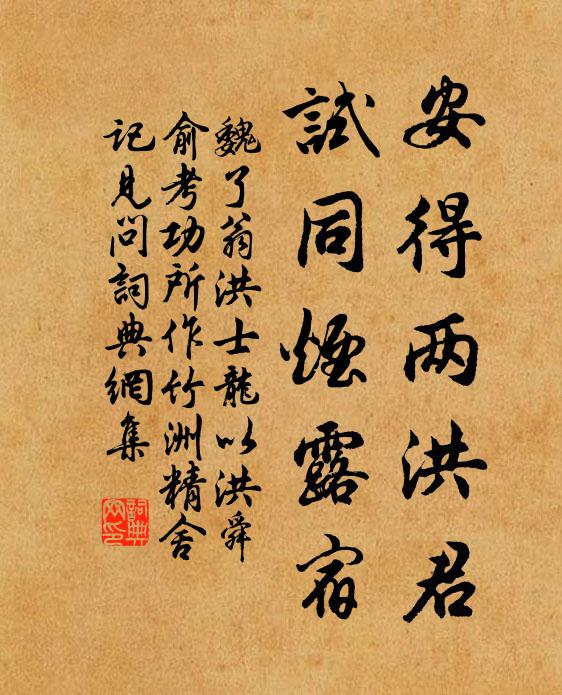 安得两洪君
試同煙露宿
魏了翁洪士龍以洪舜
俞考功所作竹洲精舍
記見問詞典網集
詞典网印